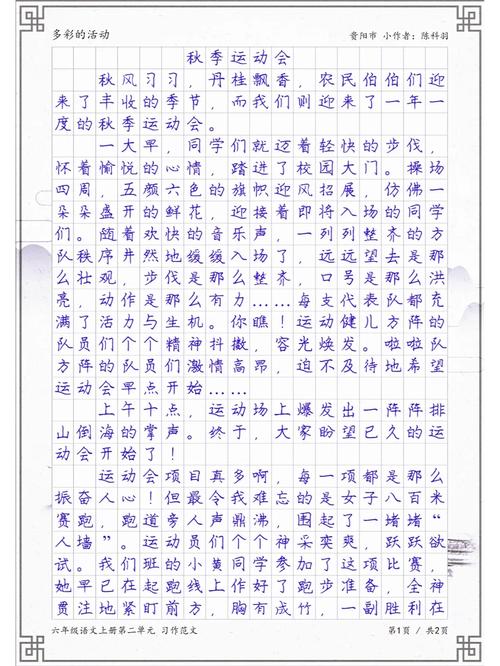 多彩的活动
贵阳市 小作者：陈科羽
秋季运动会
秋风习习，丹桂飘香，农民伯伯们迎
来了丰收的季节，而我们则迎来了一年一
度的秋季运动会。
一大早，同学们就迈着轻快的步伐，
怀着愉悦的心情，踏进了校园大门。操场
四周，五颜六色的旗帜迎风招展，仿佛一
朵朵盛开的鲜花，迎接着即将入场的同学
们。随着欢快的音乐声，一列列整齐的方
队秩序井然地缓缓入场了，远远望去是那
么壮观，步伐是那么整齐，口号是那么洪
亮，动作是那么有力……每支代表队都充
满了活力与生机。你瞧！运动健儿方阵的
队员们个个精神抖擞，容光焕发。啦啦队
方阵的队员们激情高昂，迫不及待地希望
运动会早点开始……
上午十点，运动场上爆发出一阵阵排
山倒海的掌声。终于，大家盼望已久的运
动会开始了！
运动会项目真多啊，每一项都是那么
振奋人心！但最令我难忘的是女子八百米
赛跑，跑道旁人声鼎沸，围起了一堵堵“
人墙”。运动员们个个神采奕爽，跃跃欲
试。我们班的小黄同学参加了这项比赛，
她早已在起跑线上作好了跑步准备，全神
贯注地紧盯前方，胸有成竹，一副胜利在
六年级语文上册第二单元 习作范文
第1页 / 共2页